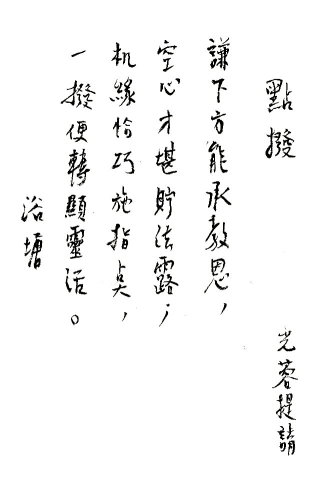 點撥
謙下方能承教恩，
空心才堪貯法露；
机緣恰巧施指点，
一撥便轉顯靈活。
浴塘
光蓉提請